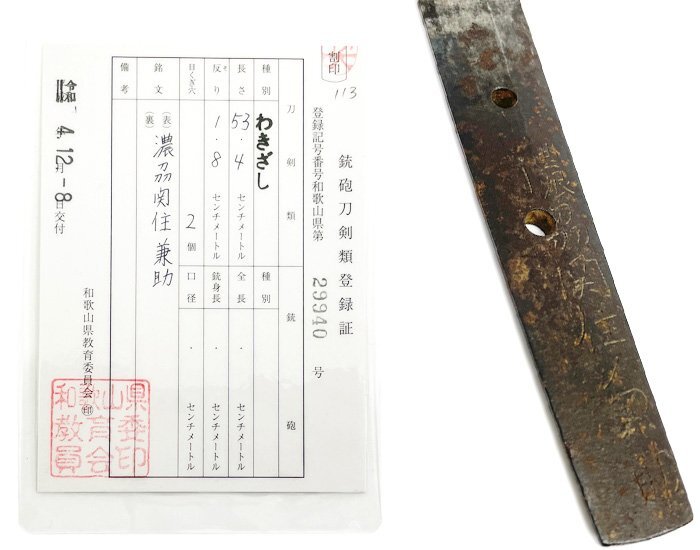 割印
113
銃砲刀剣類登録証
登録記号番号和歌山県第29940号
刀剣類
銃砲
種別
わきざし
種別
長さ
53.4センチメートル
全長
・センチメートル
反り
そ
1.8センチメートル
銃身長
・センチメートル
目くぎ穴
2個
口径
・センチメートル
銘文
(表)濃刕関住兼助
(裏)
備考
令和4.12-8日交付
和歌山県教育委員会㊞
和歌山県
教育委
員会印
濃刕関住兼